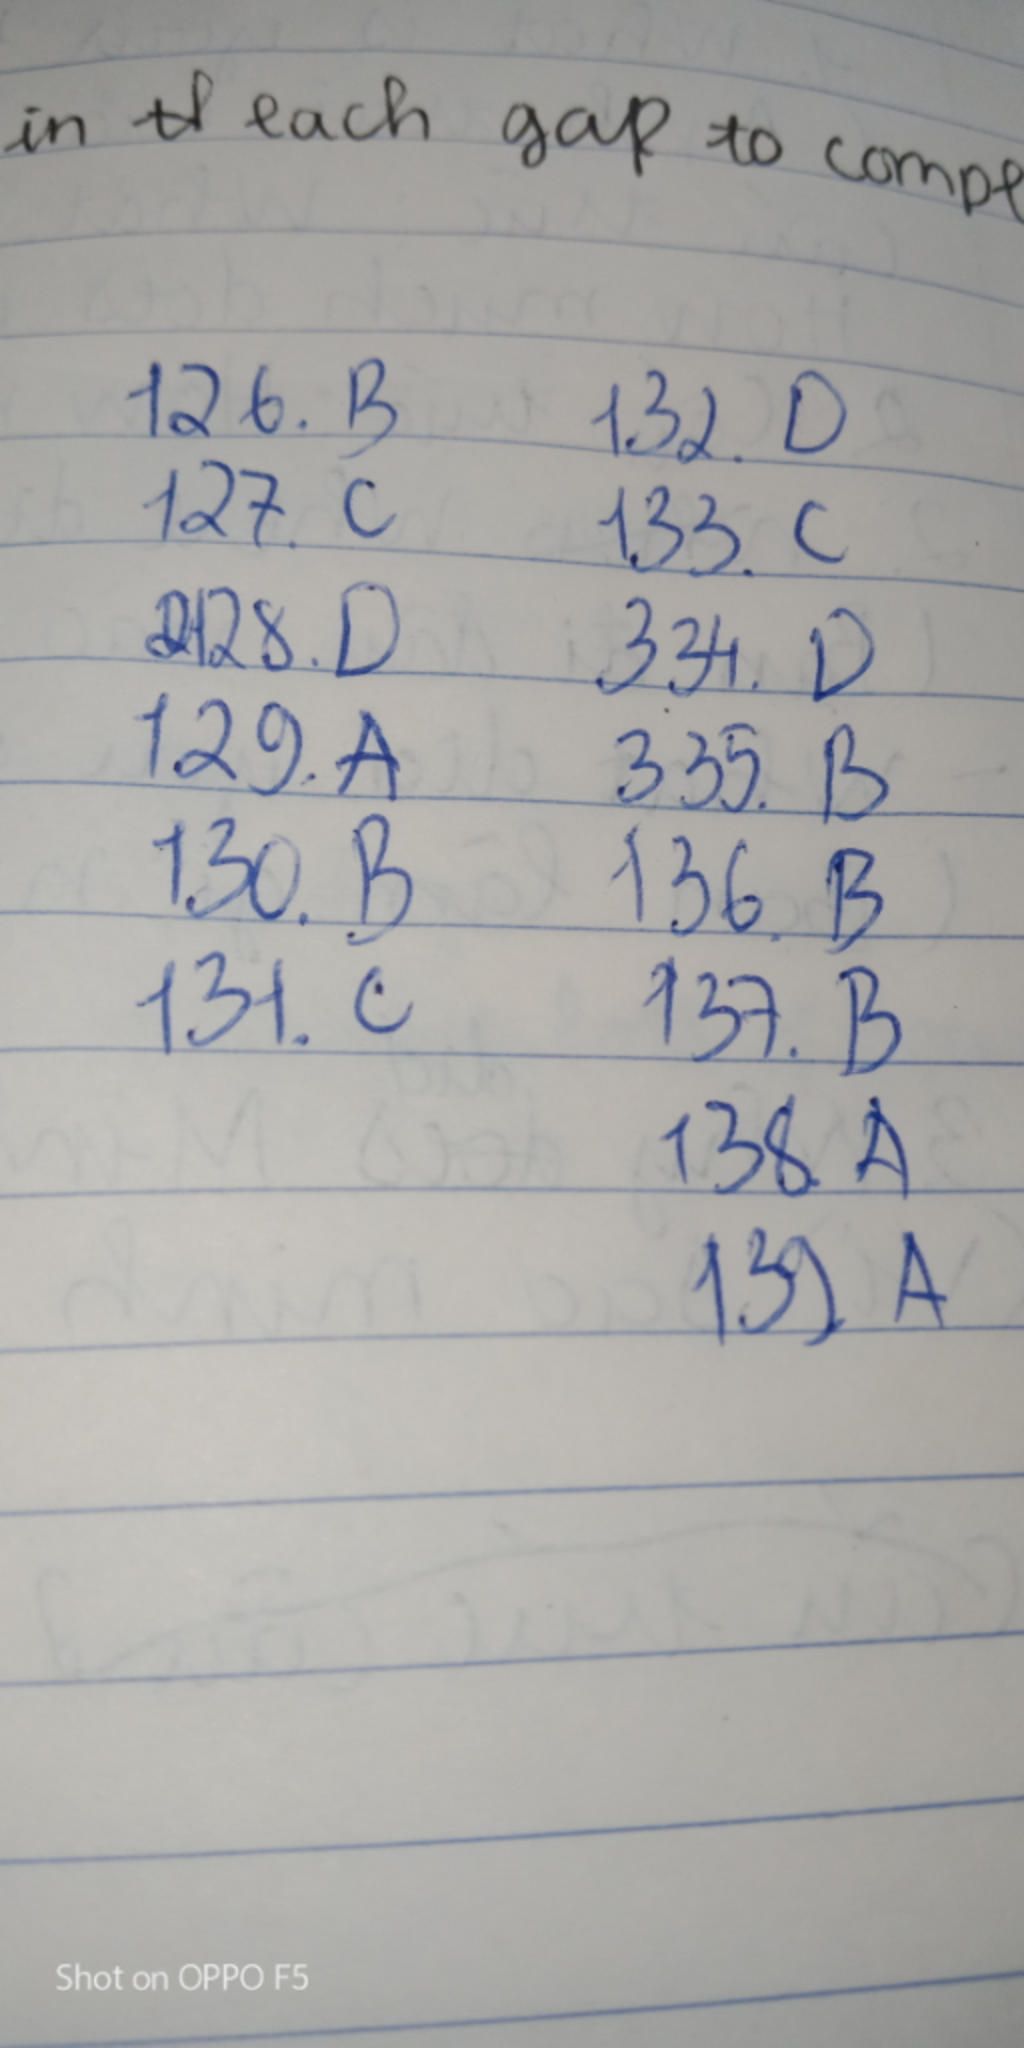 in each gap to compl
126. B
127. C
128. D
129. A
130. B
131. C
132. D
133. C
334. D
335. B
136. B
137. B
138. A
139. A
Shot on OPPO F5